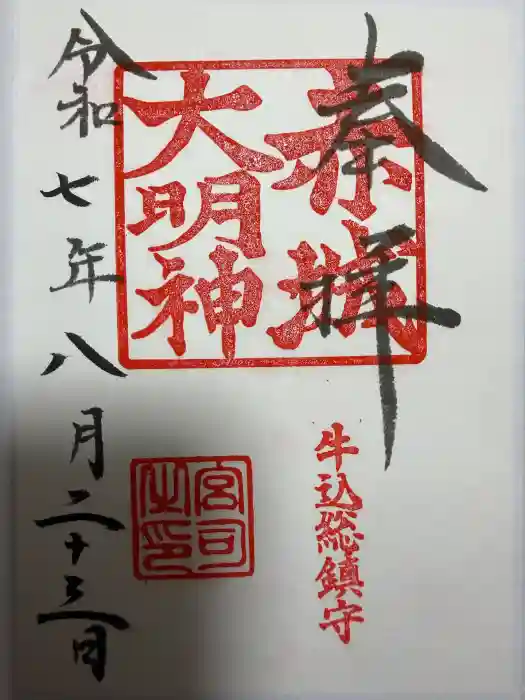 奉拝
赤城
大明神
牛込総鎮守
宮司之印
令和七年八月二十三日